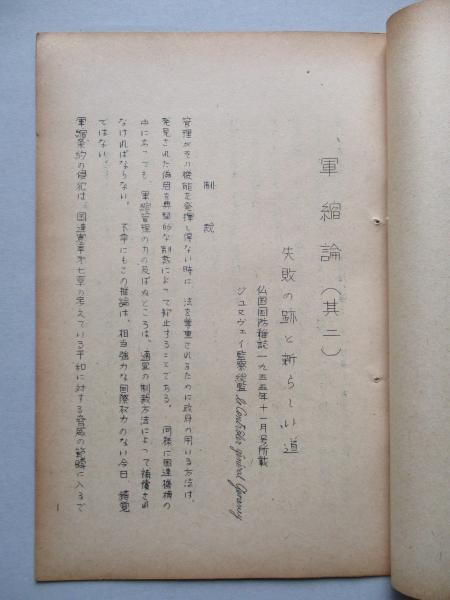 軍縮論（其二）
失敗の跡と新らしい道
仏国国防雑誌一九五五年十一月号所載
ジュヌヴェイ監察総監 le Contrôleur général Genevey
制裁
管理がその機能を発揮し得ない時に、法を尊重されるために政府の用いる方法は、
発見された偽瞞を典型的な制裁によって抑止することである。同様に国連機構の
中にあっても、軍縮管理の力の及ばぬところは、適宜の制裁方法によって補償され
なければならない。不幸にもこの推論は、相当強力な国際权力のない今日 錯覚
ではない
軍縮条約の侵犯は、国連憲章第七章の考えている平和に対する脅威の範疇に入るで
1